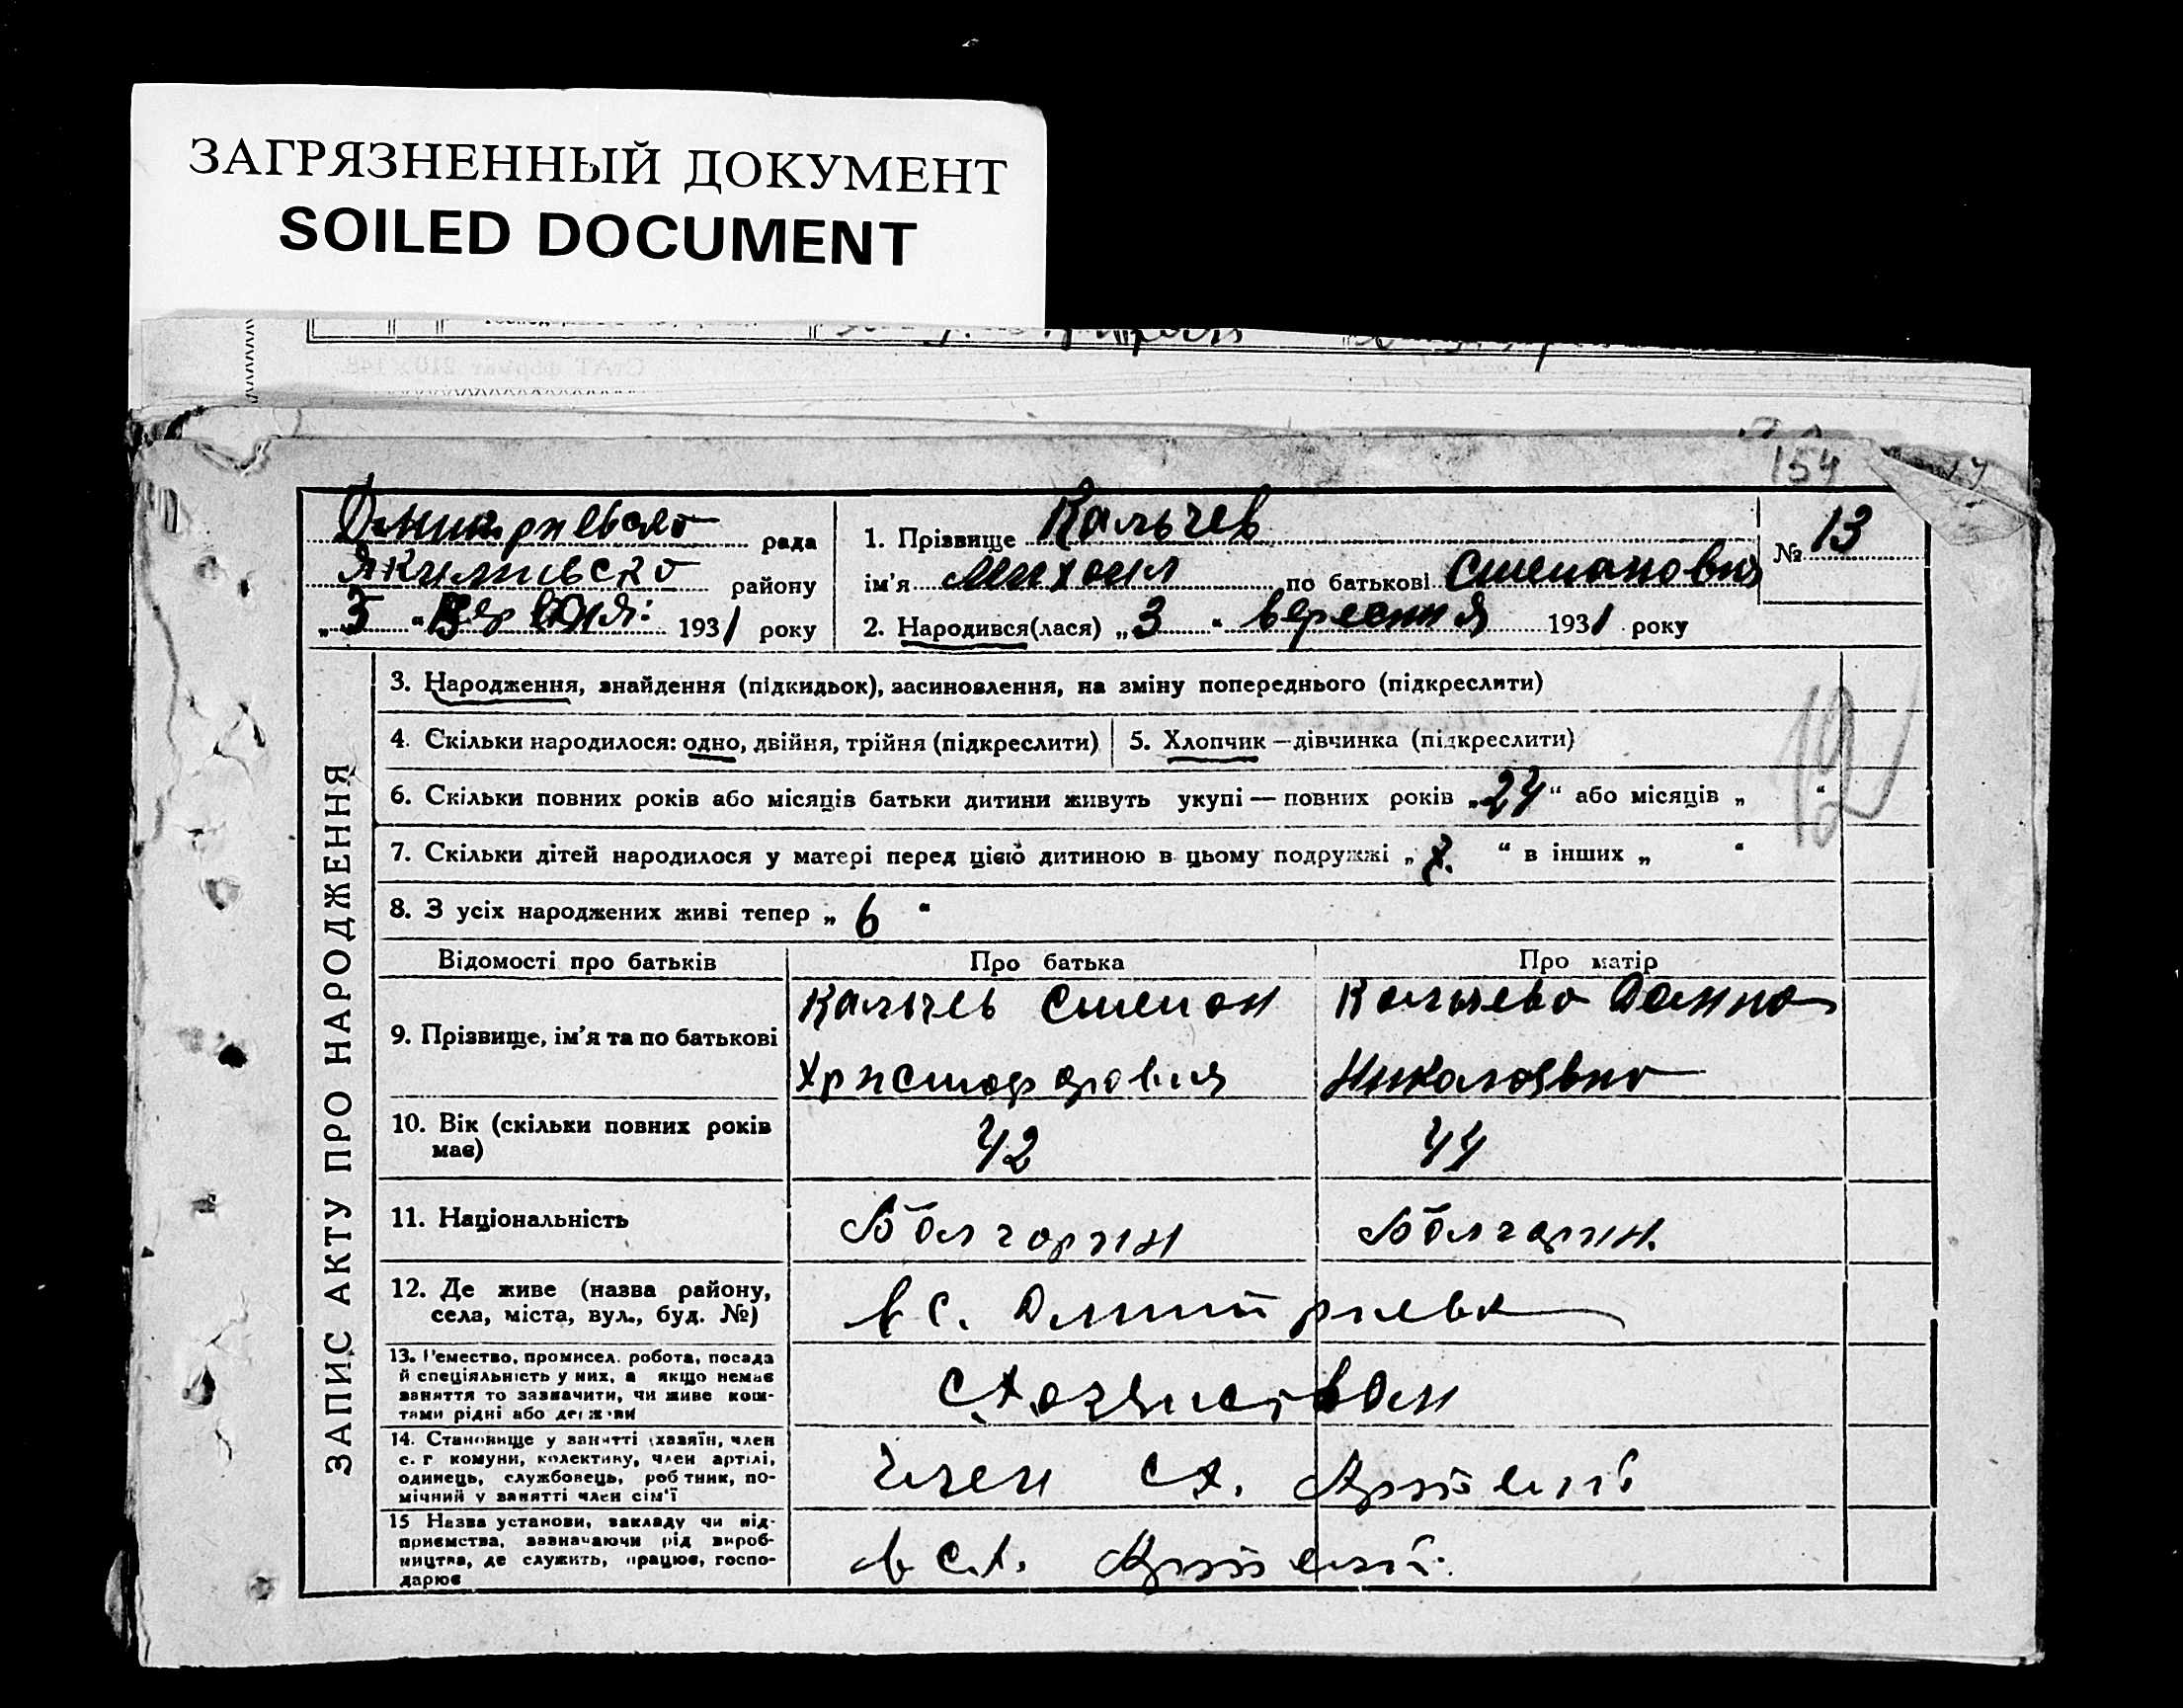 ЗАГРЯЗНЕННЫЙ ДОКУМЕНТ
SOILED DOCUMENT
154
рада
Якимівско району
„5“ 1931 року
1. Прізвище Кальчев
ім'я Михаил по батькові Степанович
№ 13
2. Народився(лася) „3“ вересня 1931 року
ЗАПИС АКТУ ПРО НАРОДЖЕННЯ
3. Народження, знайдення (підкидьок), засиновлення, на зміну попереднього (підкреслити)
4. Скільки народилося: одно, двійня, трійня (підкреслити) 5. Хлопчик — дівчинка (підкреслити)
12
6. Скільки повних років або місяців батьки дитини живуть укупі — повних років „24“ або місяців „ “
7. Скільки дітей народилося у матері перед цією дитиною в цьому подружжі „ “ в інших „ “
8. З усіх народжених живі тепер „6“
Відомості про батьків Про батька Про матір
9. Прізвище, ім'я та по батькові
Кальчев Степан
Христофорович
Кальчева
Николаевна
10. Вік (скільки повних років має)
42 44
11. Національність Болгарин Болгарин.
12. Де живе (назва району,
села, міста, вул., буд. №)
в с.
13. Ремество, промисел, робота, посада
й спеціяльність у них, а якщо немає
заняття то зазначити, чи живе кош-
тами рідні або держави
14. Становище у занятті (хазяїн, член
с. г. комуни, колективу, член артілі,
одинець, службовець, робітник, по-
мічний у занятті член сім'ї
член сх. Артели
15 Назва установи, закладу чи під-
приємства, зазначаючи рід вироб-
ництва, де служить, працює, госпо-
дарює
в с.х. Артели